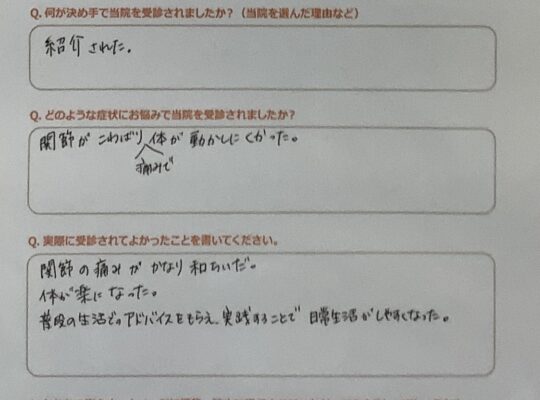 Q. 何が決め手で当院を受診されましたか？（当院を選んだ理由など）
紹介された。
Q. どのような症状にお悩みで当院を受診されましたか？
関節がこわばり、体が動かしにくかった。
痛みで
Q. 実際に受診されてよかったことを書いてください。
関節の痛みがかなり和らいだ。
体が楽になった。
普段の生活でのアドバイスをもらえ、実践することで日常生活がしやすくなった。